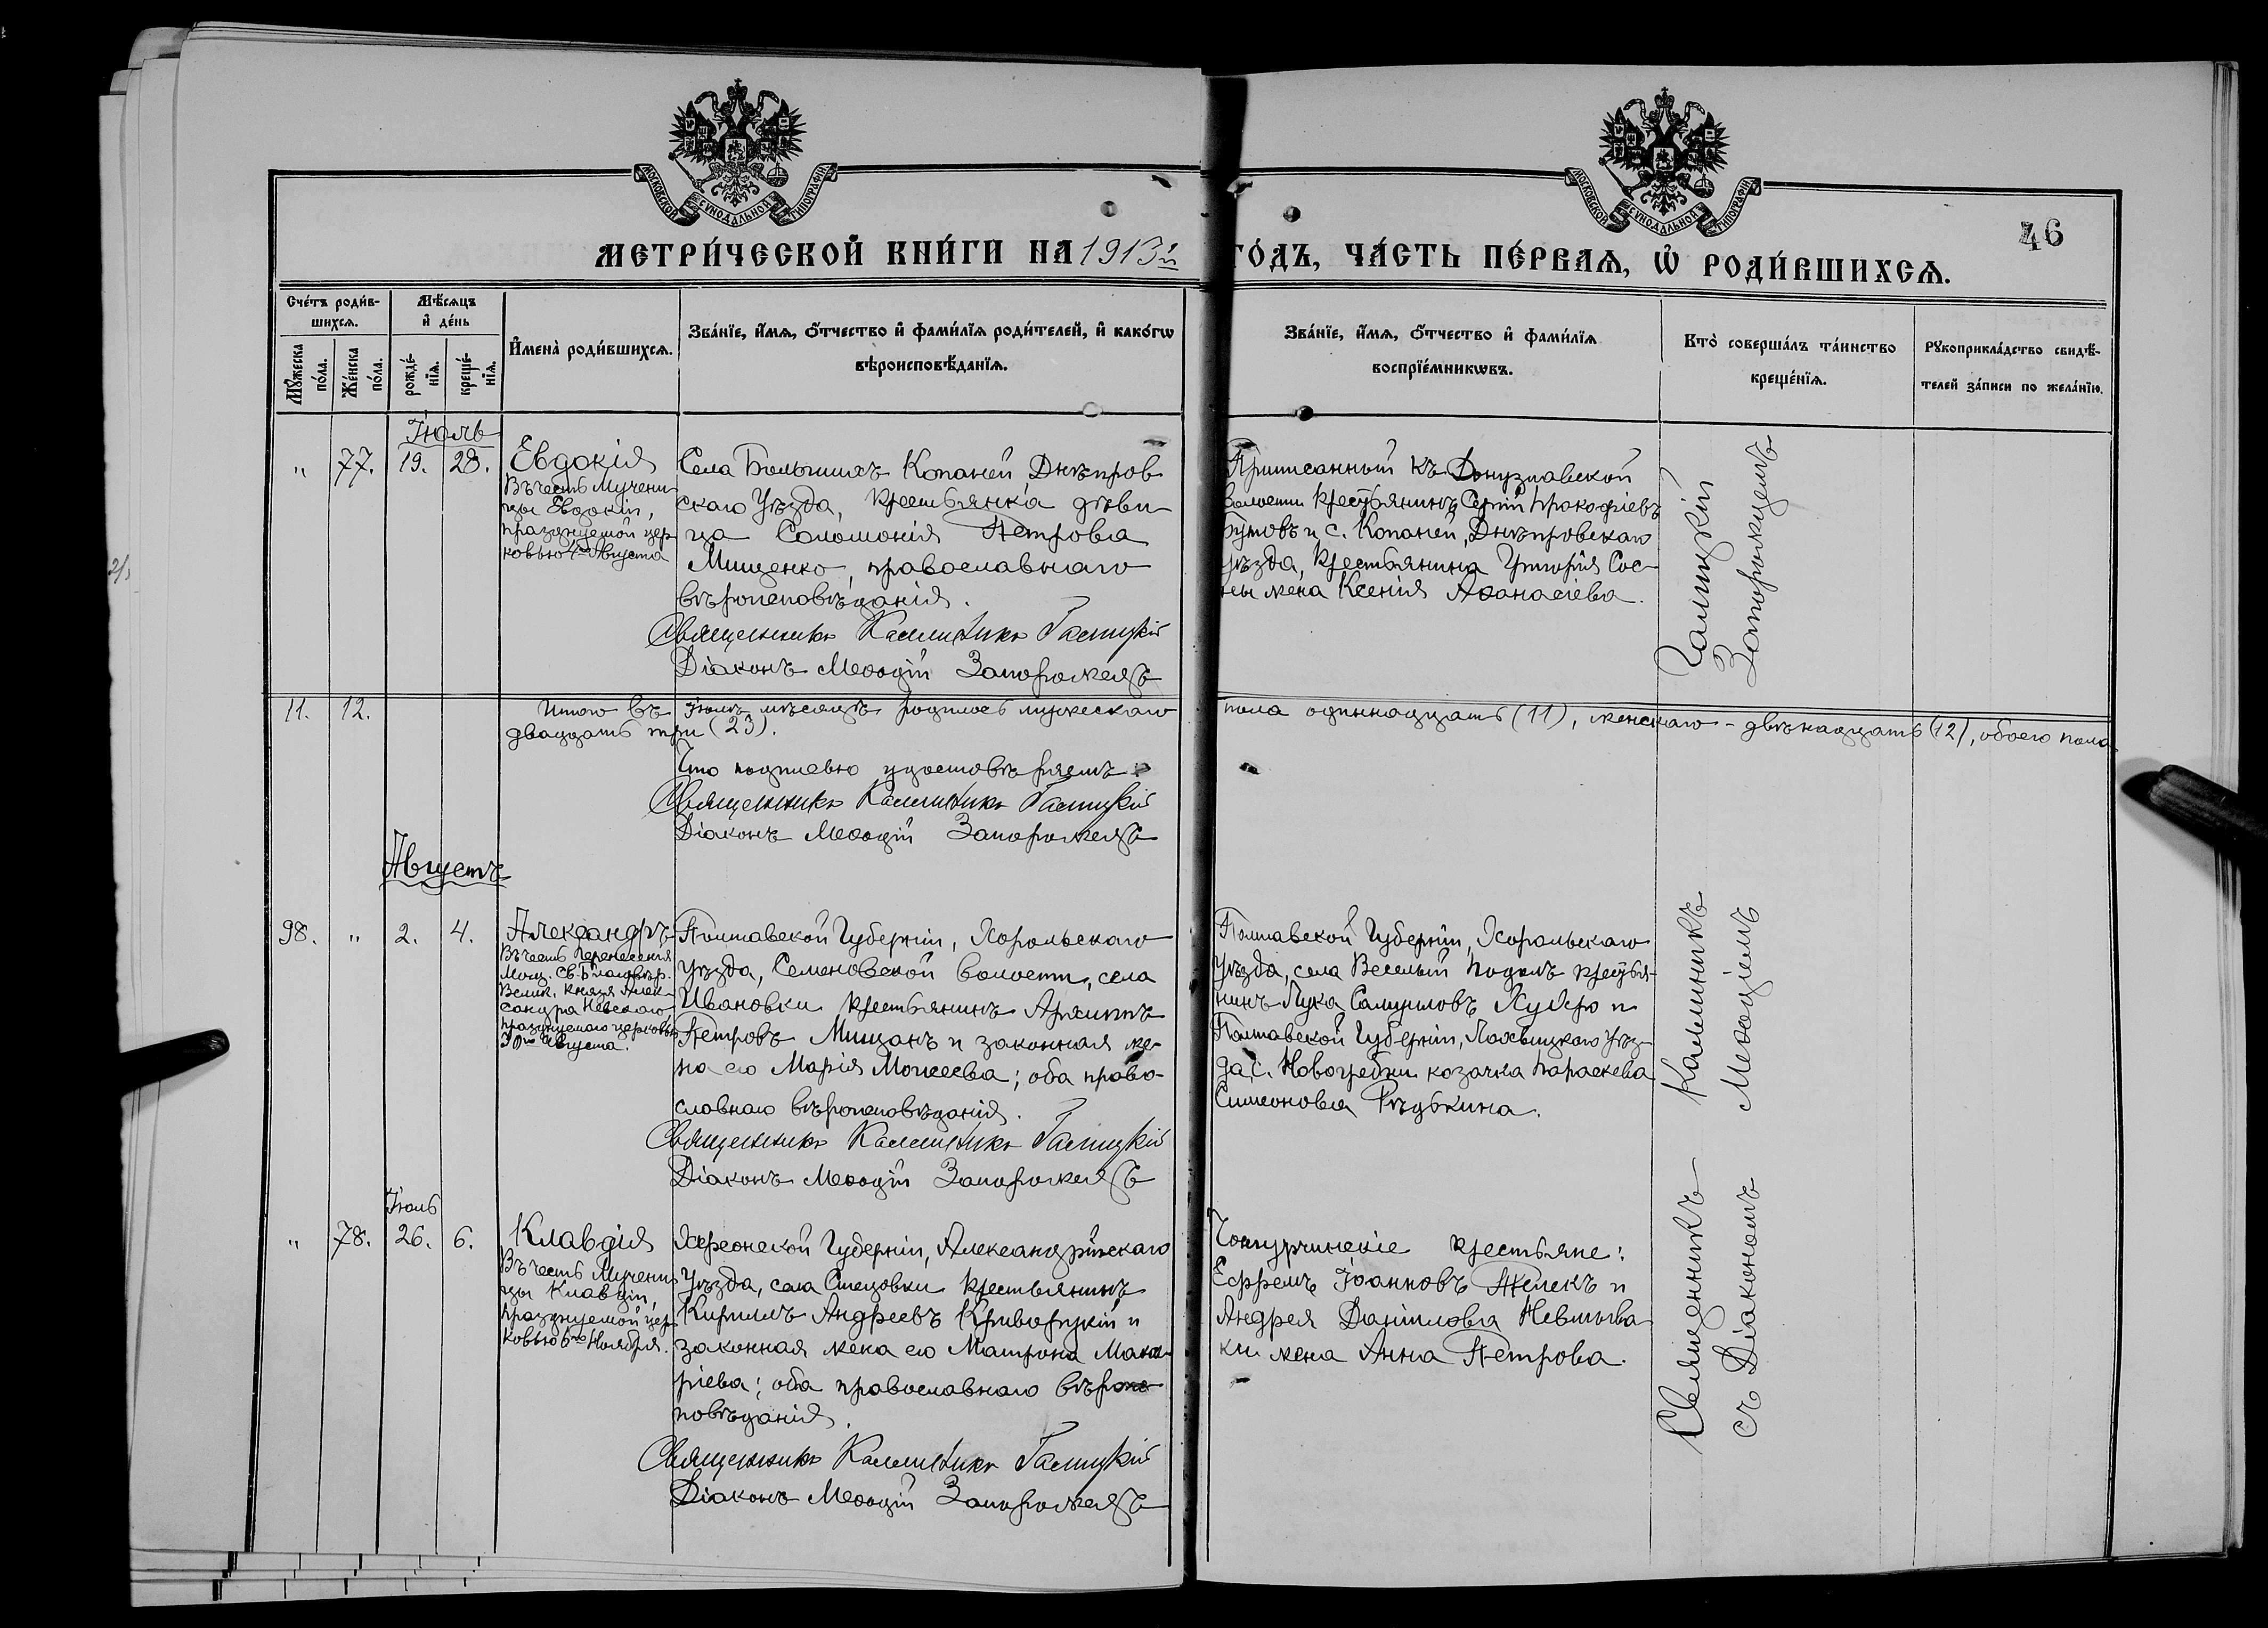 МОСКОВСКОЙ СѴНОДАЛЬНОЙ ТИПОГРАФІИ
МОСКОВСКОЙ СѴНОДАЛЬНОЙ ТИПОГРАФІИ
46
МЕТРИ́ЧЕСКОЙ КНИ́ГИ НА 1913й ГО́ДЪ, ЧА́СТЬ ПЕ́РВАѦ, Ѡ РОДИ́ВШИХСѦ.
Сче́тъ роди́в-
шихсѧ.
Мѣ́сѧцъ
и де́нь
Мꙋ́жеска
по́ла.
Же́нска
по́ла.
рожде́-
нїѧ.
креще́-
нїѧ.
Имена̀ роди́вшихсѧ.
Зва́нїе, и́мѧ, ѻ́тчество и фами́лїѧ роди́телей, и како́гѡ
вѣроисповѣ́данїѧ.
Зва́нїе, и́мѧ, ѻ́тчество и фами́лїѧ
воспрїе́мникѡвъ.
Кто̀ соверша́лъ та́инство
креще́нїѧ.
Рꙋкоприкла́дство свидѣ́-
телей за́писи по жела́нїю.
Іюль
" 77. 19. 28.
Евдокія
Въ честь Мучени-
цы Евдокіи,
празднуемой цер-
ковью 4го Августа
Села Большихъ Копаней Днѣпров
скаго Уѣзда, крестьянка дѣви-
ца Соломонія Петрова
Мищенко, православнаго
вѣроисповѣданія.
Священникъ Каллиникъ Галицкій
Діаконъ Меѳодій Запорожецъ
Приписанный къ Донузлавской
волости крестьянинъ Сергій Прокофіевъ
Бутовъ и с. Копаней, Днѣпровскаго
уѣзда, крестьянина Григорія Сос-
ны жена Ксенія Аѳанасіева.
Галицкій
Запорожцемъ
11. 12.
Итого въ Іюлѣ мѣсяцѣ родилось мужескаго пола одиннадцать (11), женскаго - двѣнадцать (12), обоего пола
двадцать три (23).
Что подписью удостовѣряемъ:
Священникъ Каллиникъ Галицкій
Діаконъ Меѳодій Запорожецъ
Августъ
98. " 2. 4.
Александръ
Въ честь Перенесенія
Мощ. Св. Благовѣр.
Велик. Князя Алек-
сандра Невскаго,
празднуемаго церковью
30го Августа.
Полтавской Губерніи, Хорольскаго
Уѣзда, Семеновской волости, села
Ивановки крестьянинъ Архиппъ
Петровъ Мищанъ и законная же-
на его Марія Моисеева; оба право-
славнаго вѣроисповѣданія.
Священникъ Каллиникъ Галицкій
Діаконъ Меѳодій Запорожецъ
Полтавской Губерніи, Хорольскаго
уѣзда, села Веселый Подолъ крестья-
нинъ Лука Самуиловъ и
Полтавской Губерніи, Лохвицкаго уѣз-
да, с. Новогребли козачка Параскева
Симеонова Рѣдькина.
Іюль
" 78. 26. 6.
Клавдія
Въ честь Мучени-
цы Клавдіи,
празднуемой цер-
ковью 6го Ноября.
Херсонской Губерніи, Александрійскаго
Уѣзда, села Стецовки крестьянинъ
Кириллъ Андреевъ Криворучкій и
законная жена его Матрона Мака-
ріева; оба православнаго вѣроис-
повѣданія.
Священникъ Каллиникъ Галицкій
Діаконъ Меѳодій Запорожецъ
крестьяне:
Ефремъ Іоанновъ и
Андрея Даніилова Невлыва-
ки жена Анна Петрова.
Священникъ Каллиникъ
съ Діакономъ Меѳодіемъ